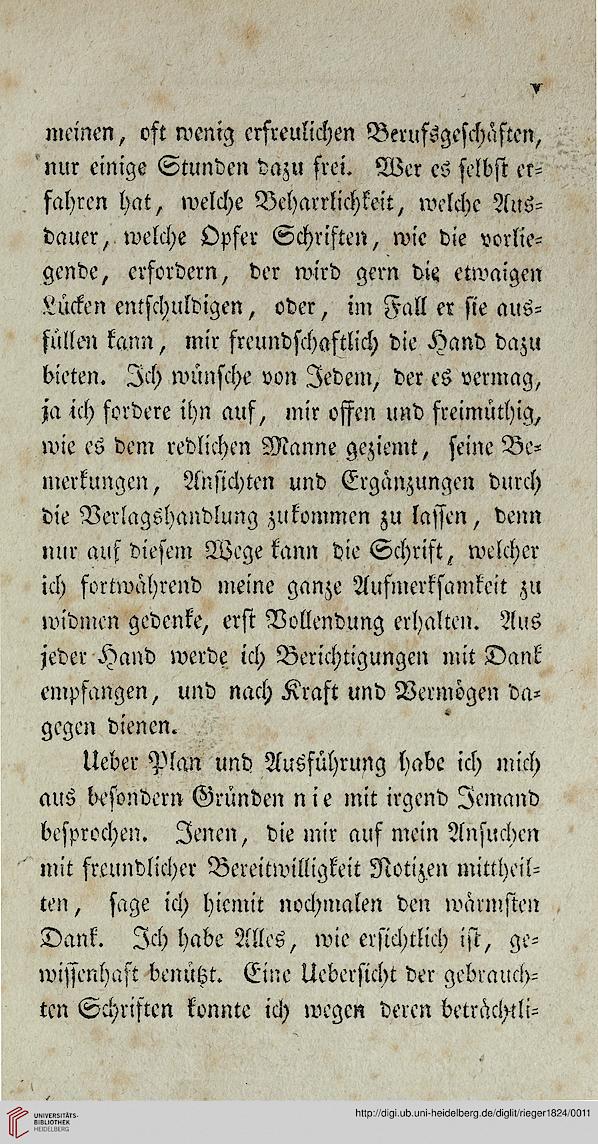 v
meinen, oft wenig erfreulichen Berufsgeschäften,
nur einige Stunden dazu frei. Wer es selbst er=
fahren hat, welche Beharrlichkeit, welche Aus=
dauer, welche Opfer Schriften, wie die vorlie=
gende, erfordern, der wird gern die etwaigen
Lücken entschuldigen, oder, im Fall er sie aus=
füllen kann, mir freundschaftlich die Hand dazu
bieten. Ich wünsche von Jedem, der es vermag,
ja ich fordere ihn auf, mir offen und freimüthig,
wie es dem redlichen Manne geziemt, seine Be=
merkungen, Ansichten und Ergänzungen durch
die Verlagshandlung zukommen zu lassen, denn
nur auf diesem Wege kann die Schrift, welcher
ich fortwährend meine ganze Aufmerksamkeit zu
widmen gedenke, erst Vollendung erhalten. Aus
jeder Hand werde ich Berichtigungen mit Dank
empfangen, und nach Kraft und Vermögen da=
gegen dienen.
Ueber Plan und Ausführung habe ich mich
aus besondern Gründen nie mit irgend Jemand
besprochen. Jenen, die mir auf mein Ansuchen
mit freundlicher Bereitwilligkeit Notizen mittheil=
ten, sage ich hiemit nochmalen den wärmsten
Dank. Ich habe Alles, wie ersichtlich ist, ge=
wissenhaft benützt. Eine Uebersicht der gebrauch=
ten Schriften konnte ich wegen deren beträchtli=
UNIVERSITÄTS-
BIBLIOTHEK
HEIDELBERG
http://digi.ub.uni-heidelberg.de/diglit/rieger1824/0011